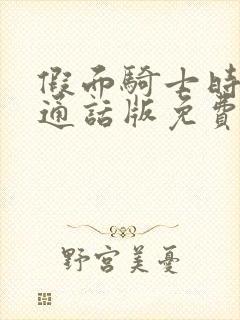 假面騎士時
通話版免費
野宮美憂